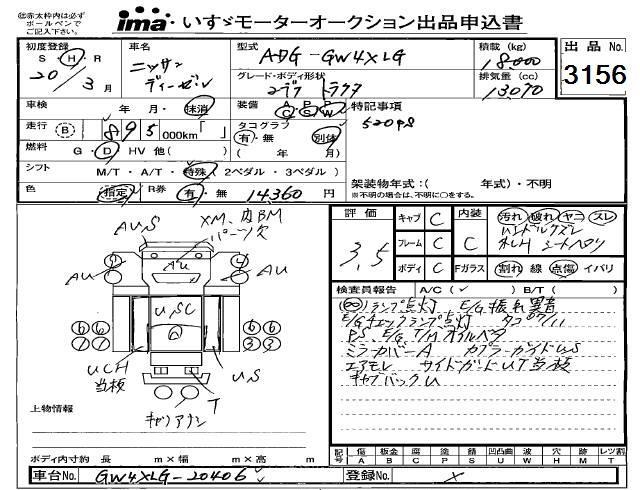 ㊟赤太枠内は必ず
ボールペンで
ご記入下さい。
ima・いすゞモーターオークション出品申込書
初度登録 S H R 20年 3月
車名 ニッサン ディーゼル
型式 ADG-GW4XLG
積載 (kg) 18,000
出品 No. 3156
グレード・ボディ形状 2デフ トラクタ
排気量 (cc) 13,070
車検 年 月・抹消
装備 A・C P・S P・W
特記事項
520PS
走行 B 895 000km「 」
タコグラフ 有・無 別体 ( 年 月)
燃料 G・D HV 他( )
シフト M/T・A/T・特殊(2ペダル・3ペダル)
架装物年式:( 年式)・不明
※不明の場合は、不明に○をする。
色 指定 R券 有・無 14,360 円
評価 3.5
キャブ C
フレーム C
ボディ C
内装 C
Fガラス
汚れ 破れ ヤコ スレ
ハンドルクズレ
割れ 線 点傷 イバリ
検査員報告 A/C(✓) B/T( )
ランプ点灯 E/G振れ異音
E/Gチェックランプ点灯
PS、E/G、T/Mオイルベタ
ミラーカバーA カプラーガイドUS
エアモレ サイドガードUT当板
キャブバックU
AUS
XM、内BM
パーツ欠
AU
AU
AU
USC
6 6
6 6
7 7
3 3
UCH
当板
US
T
上物情報
ボディ内寸約 長 m×幅 m×高 m
記号 傷 A 板金 B 腐 C 塗 P 錆 S 凹凸曲 U 波 W 穴 H 跡 M レンズ割
車台No. GW4XLG-20406
登録No. ×